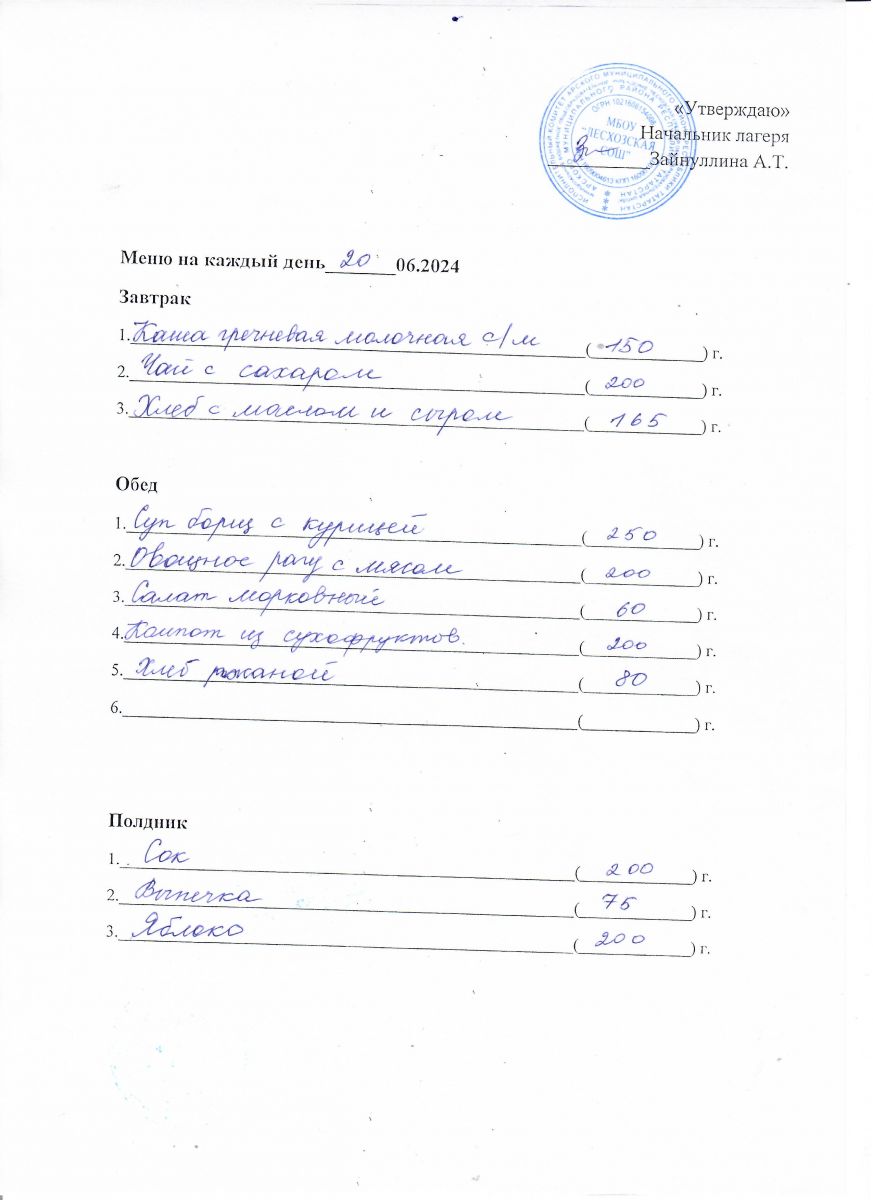 «Утверждаю»
Начальник лагеря
Зайнуллина А.Т.
МБОУ
"ЛЕСХОЗСКАЯ
СОШ"
Меню на каждый день 20 06.2024
Завтрак
1. Каша гречневая молочная с/м (150) г.
2. Чай с сахаром (200) г.
3. Хлеб с маслом и сыром (165) г.
Обед
1. Суп борщ с курицей (250) г.
2. Овощное рагу с мясом (200) г.
3. Салат морковный (60) г.
4. Компот из сухофруктов. (200) г.
5. Хлеб ржаной (80) г.
6. ( ) г.
Полдник
1. Сок (200) г.
2. Выпечка (75) г.
3. Яблоко (200) г.